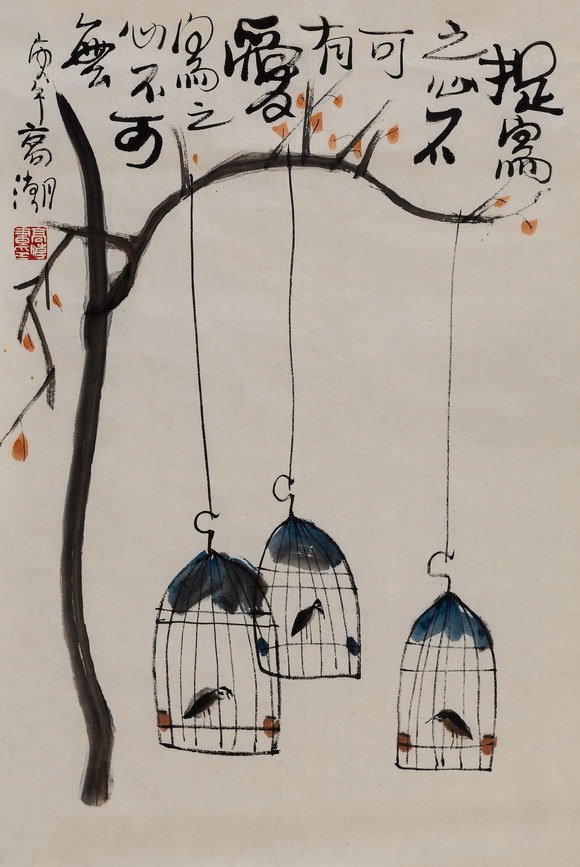 捉鳥
之心不
可
有
愛
鳥之
心不可
無
高潮